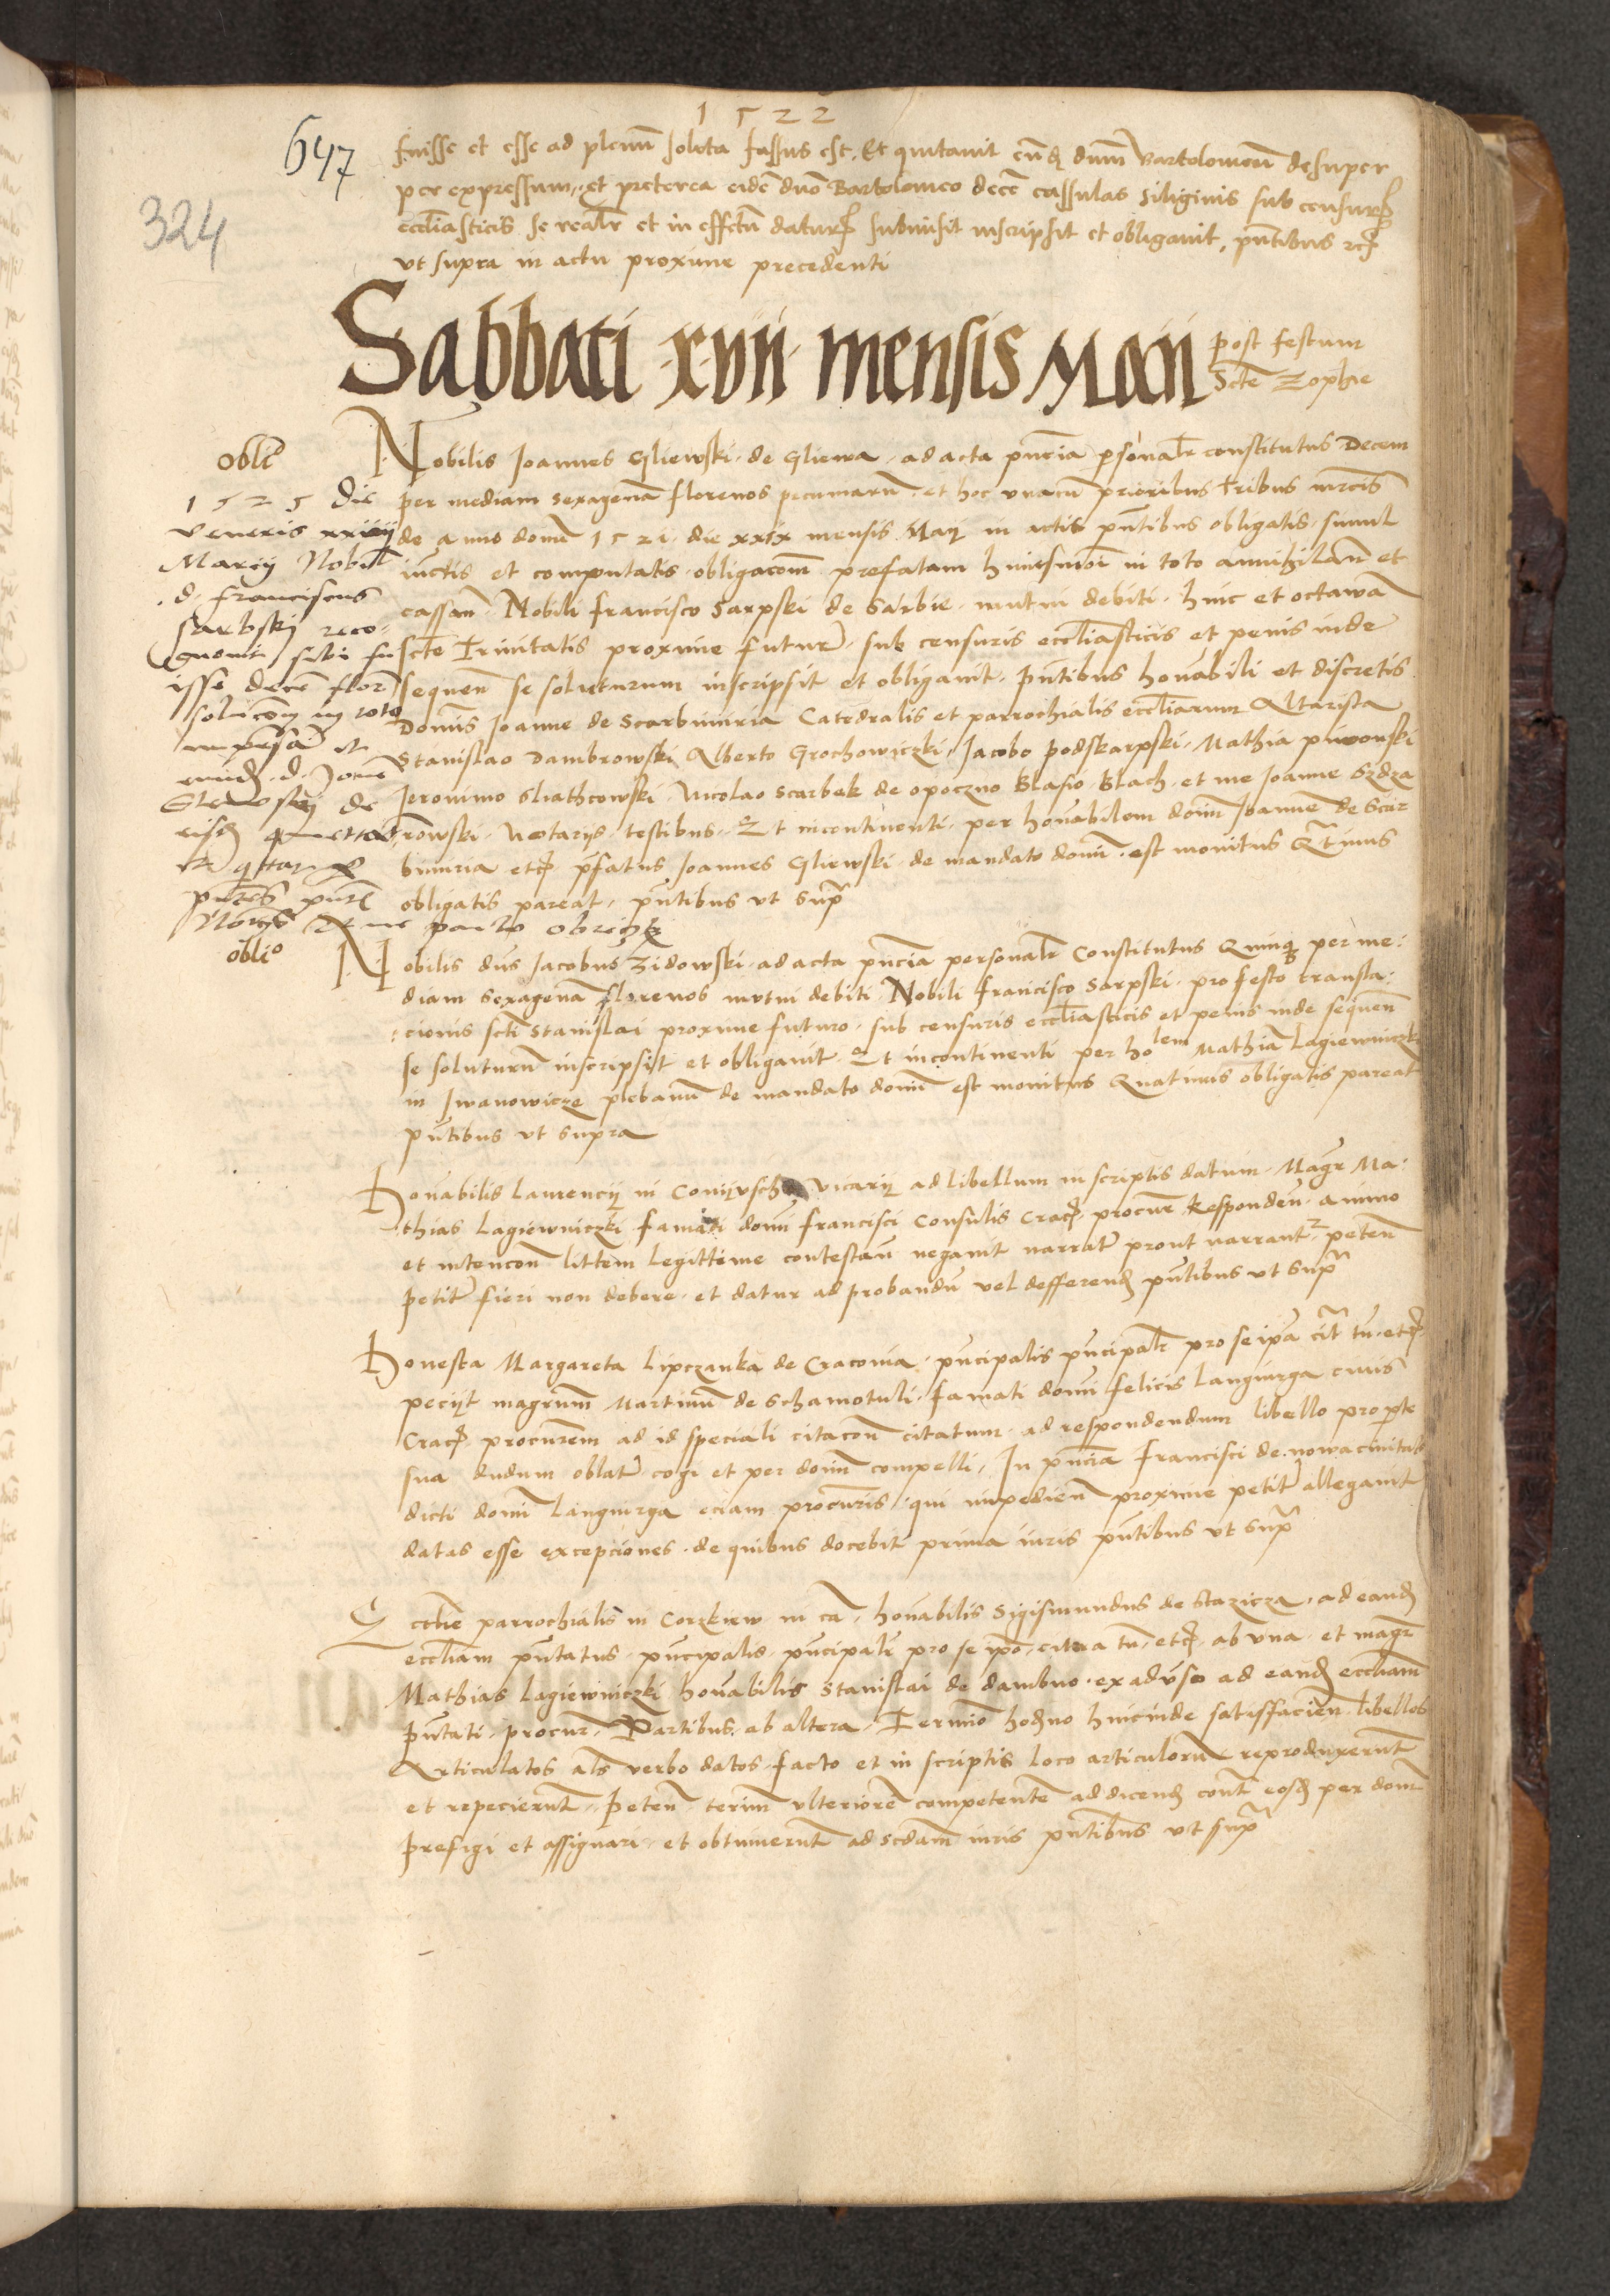 1522
647
324
fuisse et esse ad plenum soluta fassus est. Et quitavit eundem dnm Bartolomeum desuper
per expressum, Et preterea eidem dno Bartolomeo decem cassulas siliginis sub censuris
eccliasticis se realr et in effctu daturum submisit inscripsit et obligavit, pntibus etc
ut supra in actu proxime precedenti
Sabbati xvii mensis Maii post festum
Scte Zophie
Oblio
Nobilis Joannes Gliewski de Gliewa ad acta pncia personalr constitutus Decem
per mediam sexagenam florenos pecuniarum et hoc unacum prioribus tribus mrcis
de anno domi 1521 die xxix mensis Maij in actis pntibus obligatis simul
iunctis et computatis obligacom prefatam huiusmoi in toto annihilan et
cassan Nobili Francisco Sarpski de Sarbie mutui debiti hinc et octavam
scte Trinitatis proxime futur sub censuris eccliasticis et penis inde
sequen se soluturum inscripsit et obligavit pntibus honabili et discretis
Domis Joanne de Scarbimiria Catedralis et parrochialis eccliarum Altarista
Stanislao Dambrowski Alberto Grochowiczki Jacobo Podskarpski Mathia
Jeronimo Nicolao Scarbek de Opoczno Blasio Blach et me Joanne
Notarijs testibus Et incontinenti per honabilem domi Joannem de Scar
bimiria etc pfatus Joannes Gliewski de mandato domi est monitus quatinus
obligatis pareat pntibus ut supra
1525 die
Veneris xxiiij
Marcij Nobil
d. Franciscus
Sarbskij reco-
gnovit sibi fu
isse decem floren
solucom in toto
et
d. Joane
de
Oblio
Nobilis dns Jacobus Zidowski ad acta pncia personalr Constitutus Quinque per me-
diam sexagenam florenos mutui debiti Nobili Francisco Sarpski pro festo transla-
cionis scti Stanislai proxime futuro sub censuris eccliasticis et penis inde sequen
se soluturum inscripsit et obligavit Et incontinenti per holem Mathiam Lagiewniczki
in Iwanowicze plebanum de mandato domi est monitus Quatinus obligatis pareat
pntibus ut supra
Honabilis Laurencij in vicarij ad libellum in scriptis datum Magr Ma-
thias Lagiewniczki famati domi Francisci Consulis Crac procur Responden animo
et intencon littem legittime contestan negavit narrata prout narrantr peten
petita fieri non debere et datur ad probandum vel defferend pntibus ut supra
Honesta Margareta Lipczanka de Cracovia pncipalis pncipalr pro se ipa citra tn etc
peciit magrum Martinum de Schamotuli famati domi Felicis Langiurga civis
Crac procurem ad id speciali citacon citatum ad respondendum libello pro parte
sua dudum oblato cogi et per domi compelli, In pncia Francisci de Nowacivitate
dicti domi Langiurga eciam procuris qui impedien proxime petita allegavit
datas esse excepciones de quibus docebit prima iuris pntibus ut supra
Ecclie parrochialis in Corzkiew in ca honabilis Sigismundus de Stazicza ad eand
eccliam pntatus pncipalis pncipalr pro se ipo citra tn etc ab una et magr
Mathias Lagiewniczki honabilis Stanislai de Dambno ex adverso ad eand eccliam
pntati procur Partibus ab altera Termio hodno hincinde satisfacien libellos
Articulatos als verbo datos facto et in scriptis loco articulorum reproduxerunt
et repecierunt, Peten terim ulteriorem competentem ad dicend cont eosd per domi
prefigi et assignari et obtinuerunt ad scdam iuris pntibus ut supra